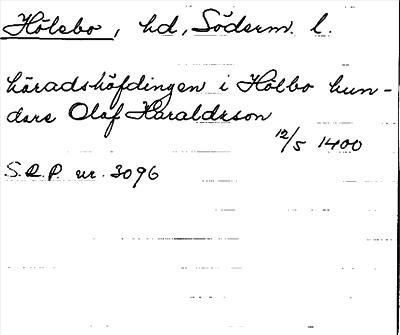 Hölebo, hd, Söderm. l.
häradshöfdingen i Hölbo hun-
dare Olof Haraldsson
12/5 1400
S.R.P. nr. 3096